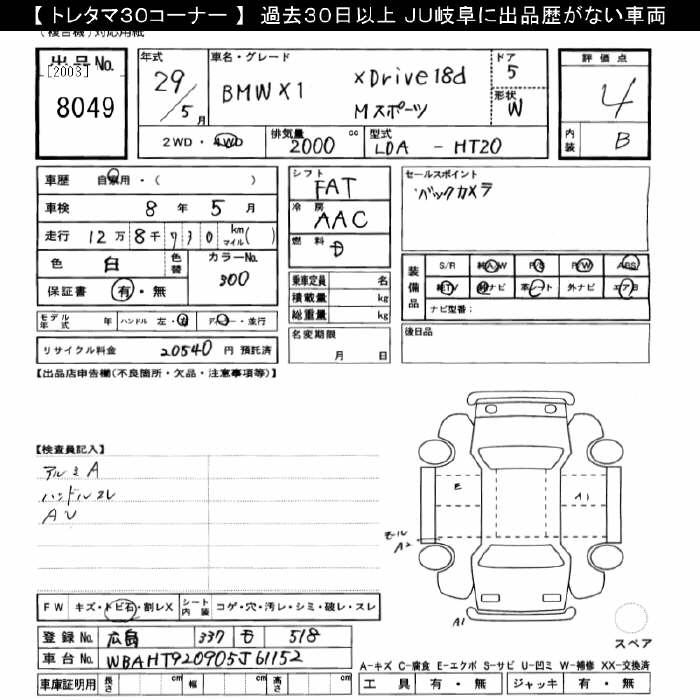 【 トレタマ30コーナー 】 過去30日以上 JU岐阜に出品歴がない車両
(複合機)対応用紙
出品No. [2003] 8049
年式 29/5月
車名・グレード BMW X1 xDrive18d Mスポーツ
ドア 5
形状 W
評価点 4
内装 B
2WD・4WD 排気量 2000 cc 型式 LDA - HT20
車歴 自家用・( )
車検 8年 5月
走行 12万 8千 730 km マイル( )
色 白 色替 カラーNo. 300
保証書 有・無
シフト FAT
冷房 AAC
燃料 D
乗車定員 名
積載量 kg
総重量 kg
名変期限 月 日
セールスポイント
バックカメラ
装備品 S/R 純A/W P/S P/W ABS
純TV 純ナビ 革シート 外ナビ エアB
ナビ型番:
後日品
モデル年式 年 ハンドル 左・右 ディーラー・並行
リサイクル料金 20540 円 預託済
【出品店申告欄(不良箇所・欠品・注意事項等)】
【検査員記入】
アルミA
ハンドルスレ
AU
E
A1
モール A2
A1
スペア
FW キズ・トビ石・割レX シート内装 コゲ・穴・汚レ・シミ・破レ・スレ
登録No. 広島 337 モ 518
車台No. WBAHT920905J61152
車庫証明用 長さ cm 幅 cm 高さ cm
A-キズ C-腐食 E-エクボ S-サビ U-凹ミ W-補修 XX-交換済
工具 有・無 ジャッキ 有・無